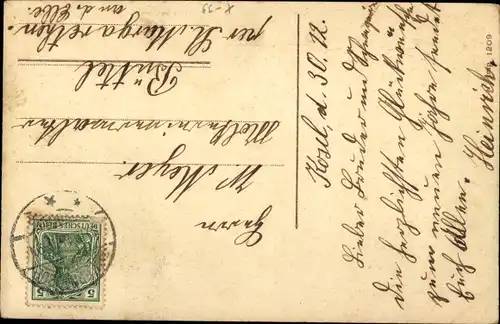 Kosel, d. 30. 12.
Lieber Bruder und Schwägerin
Die herzlichsten Glückwünsche
zum neuen Jahre sendet
Euch Allen. Heinrich.
Herrn
W Meyer.
Molkereiverwalter
Büttel
per St. Margarethen.
an d. Elbe.
DEUTSCHES REICH
5 5
1209